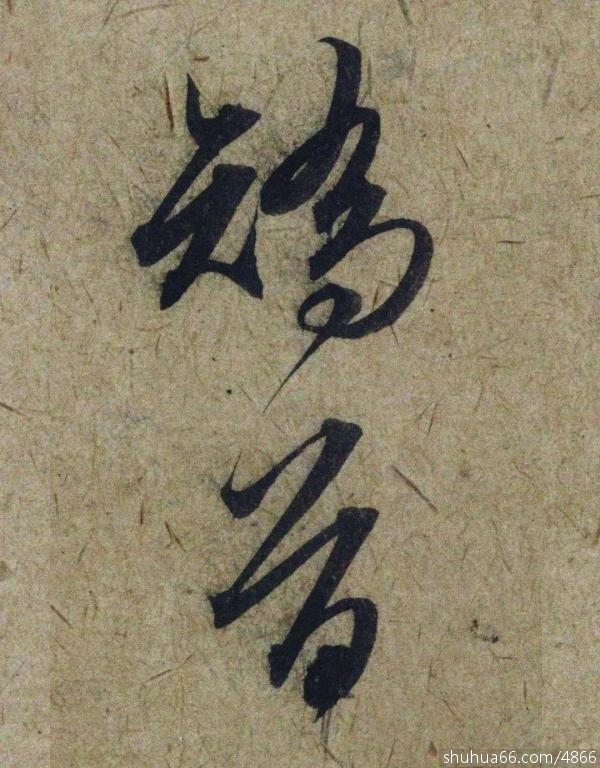 矯首
shuhua66.com/4866